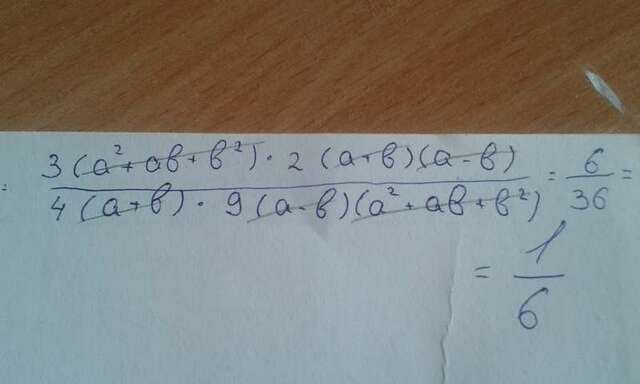 = 3(a²+ab+b²)·2(a+b)(a-b) / 4(a+b)·9(a-b)(a²+ab+b²) = 6/36 =
= 1/6